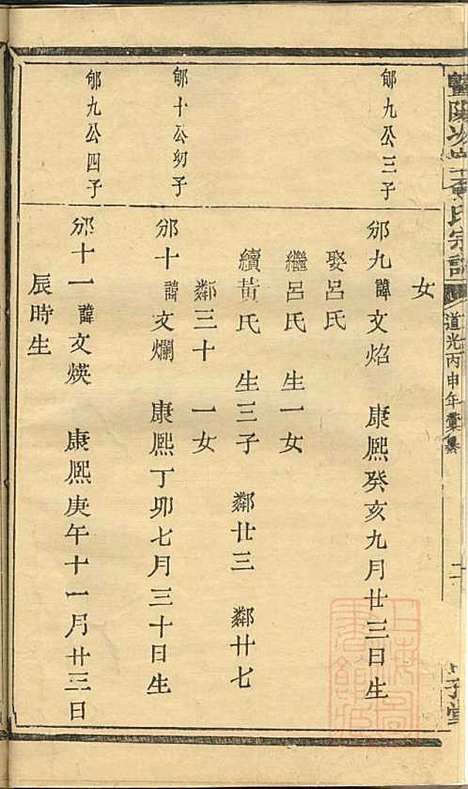 女
郇九公三子
邠九諱文焰 康熙癸亥九月廿三日生
娶呂氏
繼呂氏 生一女
續黃氏 生三子 鄰廿三 鄰廿七
鄰三十 一女
郇十公幼子
邠十諱文爛 康熙丁卯七月三十日生
郇九公四子
邠十一諱文煐 康熙庚午十一月廿三日
辰時生
暨陽 氏宗譜
道光丙申年彙纂